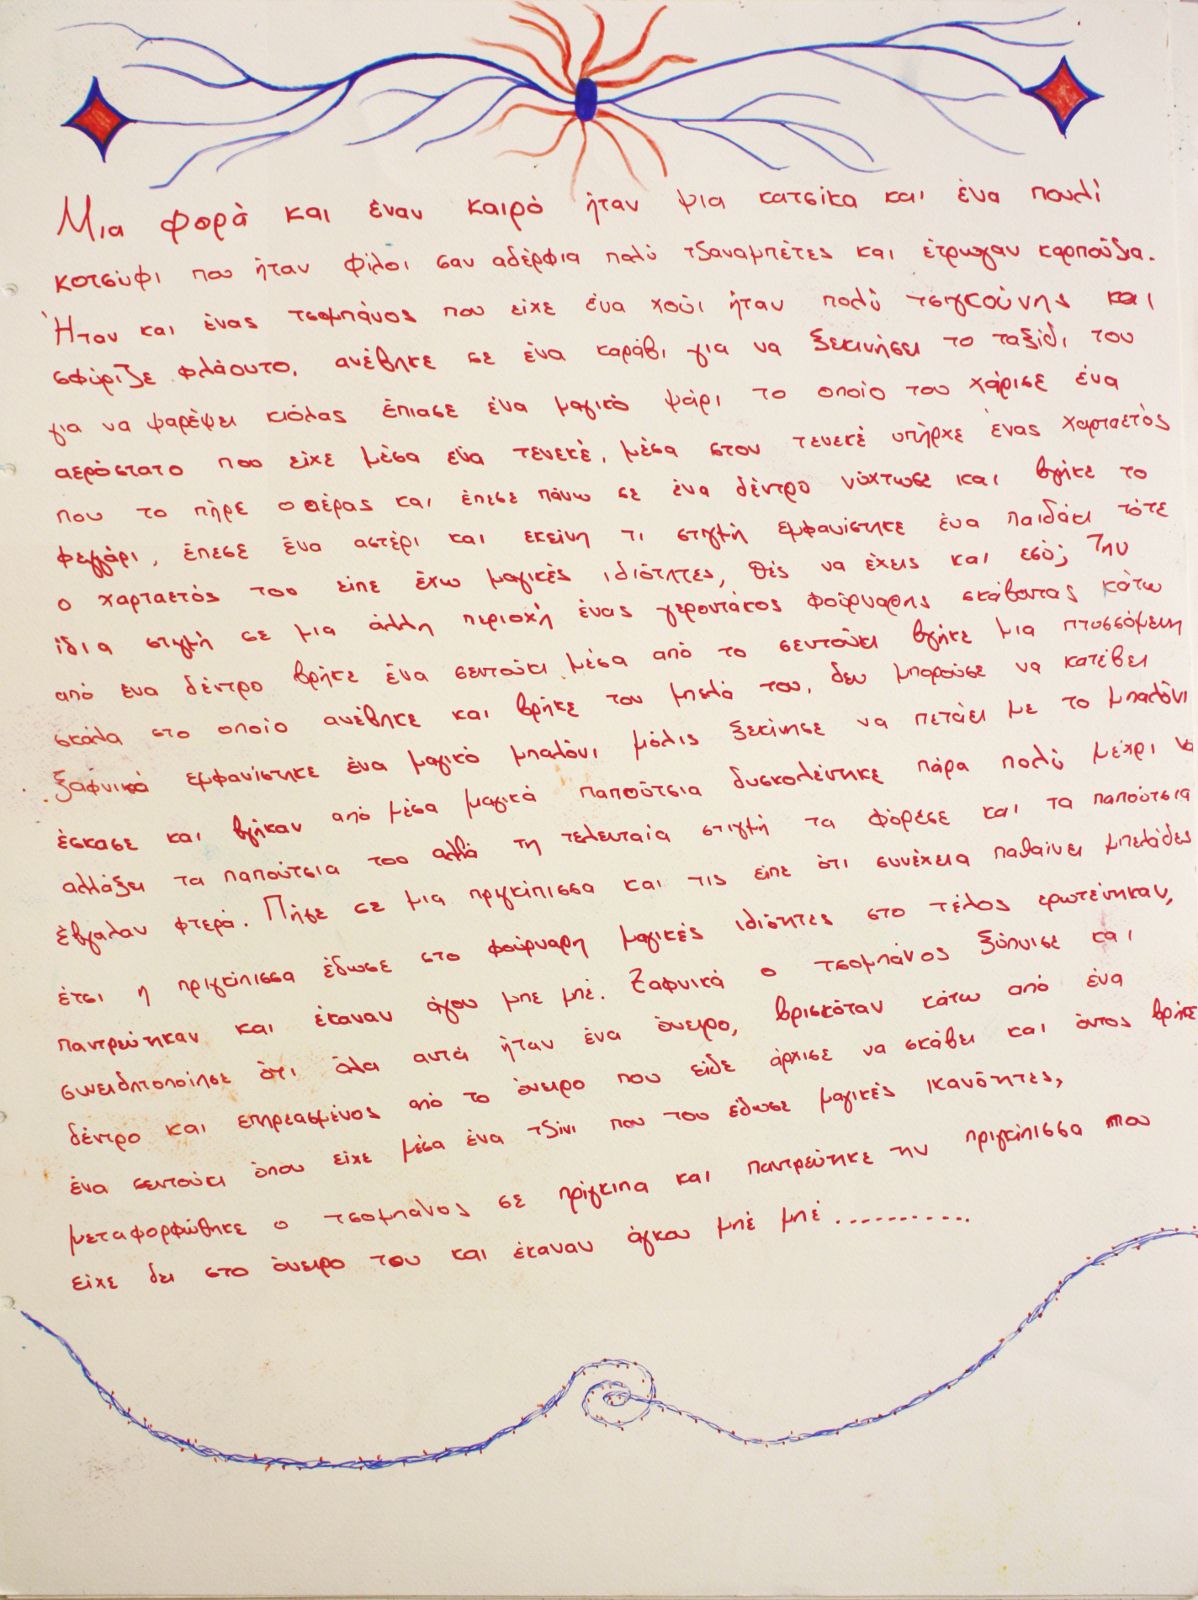 Μια φορά και έναν καιρό ήταν μια κατσίκα και ένα πουλί
κοτσύφι που ήταν φίλοι σαν αδέρφια πολύ τζαναμπέτες και έτρωγαν καρπούζια.
Ήταν και ένας τσομπάνος που είχε ένα χούι ήταν πολύ τσιγκούνης και
σφύριζε φλάουτο, ανέβηκε σε ένα καράβι για να ξεκινήσει το ταξίδι του
για να ψαρέψει κιόλας έπιασε ένα μαγικό ψάρι το οποίο του χάρισε ένα
αερόστατο που είχε μέσα ένα τενεκέ, μέσα στον τενεκέ υπήρχε ένας χαρταετός
που το πήρε ο αέρας και έπεσε πάνω σε ένα δέντρο νύχτωσε και βγήκε το
φεγγάρι, έπεσε ένα αστέρι και εκείνη τι στιγμή εμφανίστηκε ένα παιδάκι τότε
ο χαρταετός του είπε έχω μαγικές ιδιότητες, θές να έχεις και εσύ; Την
ίδια στιγμή σε μια άλλη περιοχή ένας γεροντάκος φούρναρης σκάβοντας κάτω
από ένα δέντρο βρήκε ένα σεντούκι μέσα από το σεντούκι βγήκε μια πτυσσόμενη
σκάλα στο οποίο ανέβηκε και βρήκε τον μπελά του, δεν μπορούσε να κατέβει
ξαφνικά εμφανίστηκε ένα μαγικό μπαλόνι μόλις ξεκίνησε να πετάει με το μπαλόνι
έσκασε και βγήκαν από μέσα μαγικά παπούτσια δυσκολεύτηκε πάρα πολύ μέχρι να
αλλάξει τα παπούτσια του αλλά τη τελευταία στιγμή τα φόρεσε και τα παπούτσια
έβγαλαν φτερά. Πήγε σε μια πριγκίπισσα και τις είπε ότι συνέχεια παθαίνει μπελάδες
έτσι η πριγκίπισσα έδωσε στο φούρναρη μαγικές ιδιότητες στο τέλος ερωτεύτηκαν,
παντρεύτηκαν και έκαναν άγου μπε μπέ. Ξαφνικά ο τσομπάνος ξύπνισε και
συνειδητοποίησε ότι όλα αυτά ήταν ένα όνειρο, βρισκόταν κάτω από ένα
δέντρο και επηρεασμένος από το όνειρο που είδε άρχισε να σκάβει και όντος βρήκε
ένα σεντούκι όπου είχε μέσα ένα τζίνι που του έδωσε μαγικές ικανότητες,
μεταφορφώθηκε ο τσομπάνος σε πρίγκιπα και παντρεύτηκε την πριγκίπισσα που
είχε δει στο όνειρο του και έκαναν άγκου μπέ μπέ ............